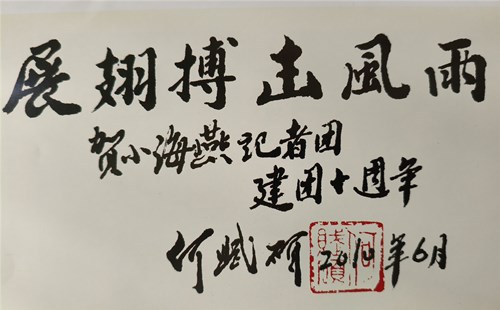 展翅搏击風雨
贺小海燕记者团
建团十週年
何赋硕 2010年6月